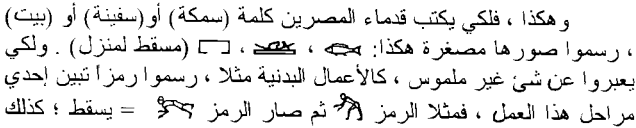 وهكذا ، فلكي يكتب قدماء المصرين كلمة (سمكة) أو(سفينة) أو (بيت)
، رسموا صورها مصغرة هكذا: ، ، (مسقط لمنزل) . ولكي
يعبروا عن شئ غير ملموس ، كالأعمال البدنية مثلا ، رسموا رمزاً تبين إحدي
مراحل هذا العمل ، فمثلا الرمز ثم صار الرمز = يسقط ؛ كذلك